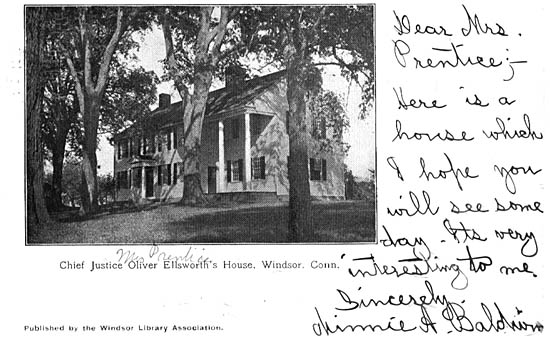 Dear Mrs.
Prentice;-
Here is a
house which
I hope you
will see some
day. Its very
interesting to me.
Sincerely,
Minnie A. Baldwin
Mrs Prentice
Chief Justice Oliver Ellsworth's House, Windsor, Conn.
Published by the Windsor Library Association.